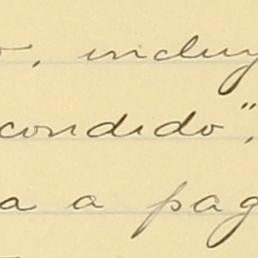 o, incluy
condido",
a a pag